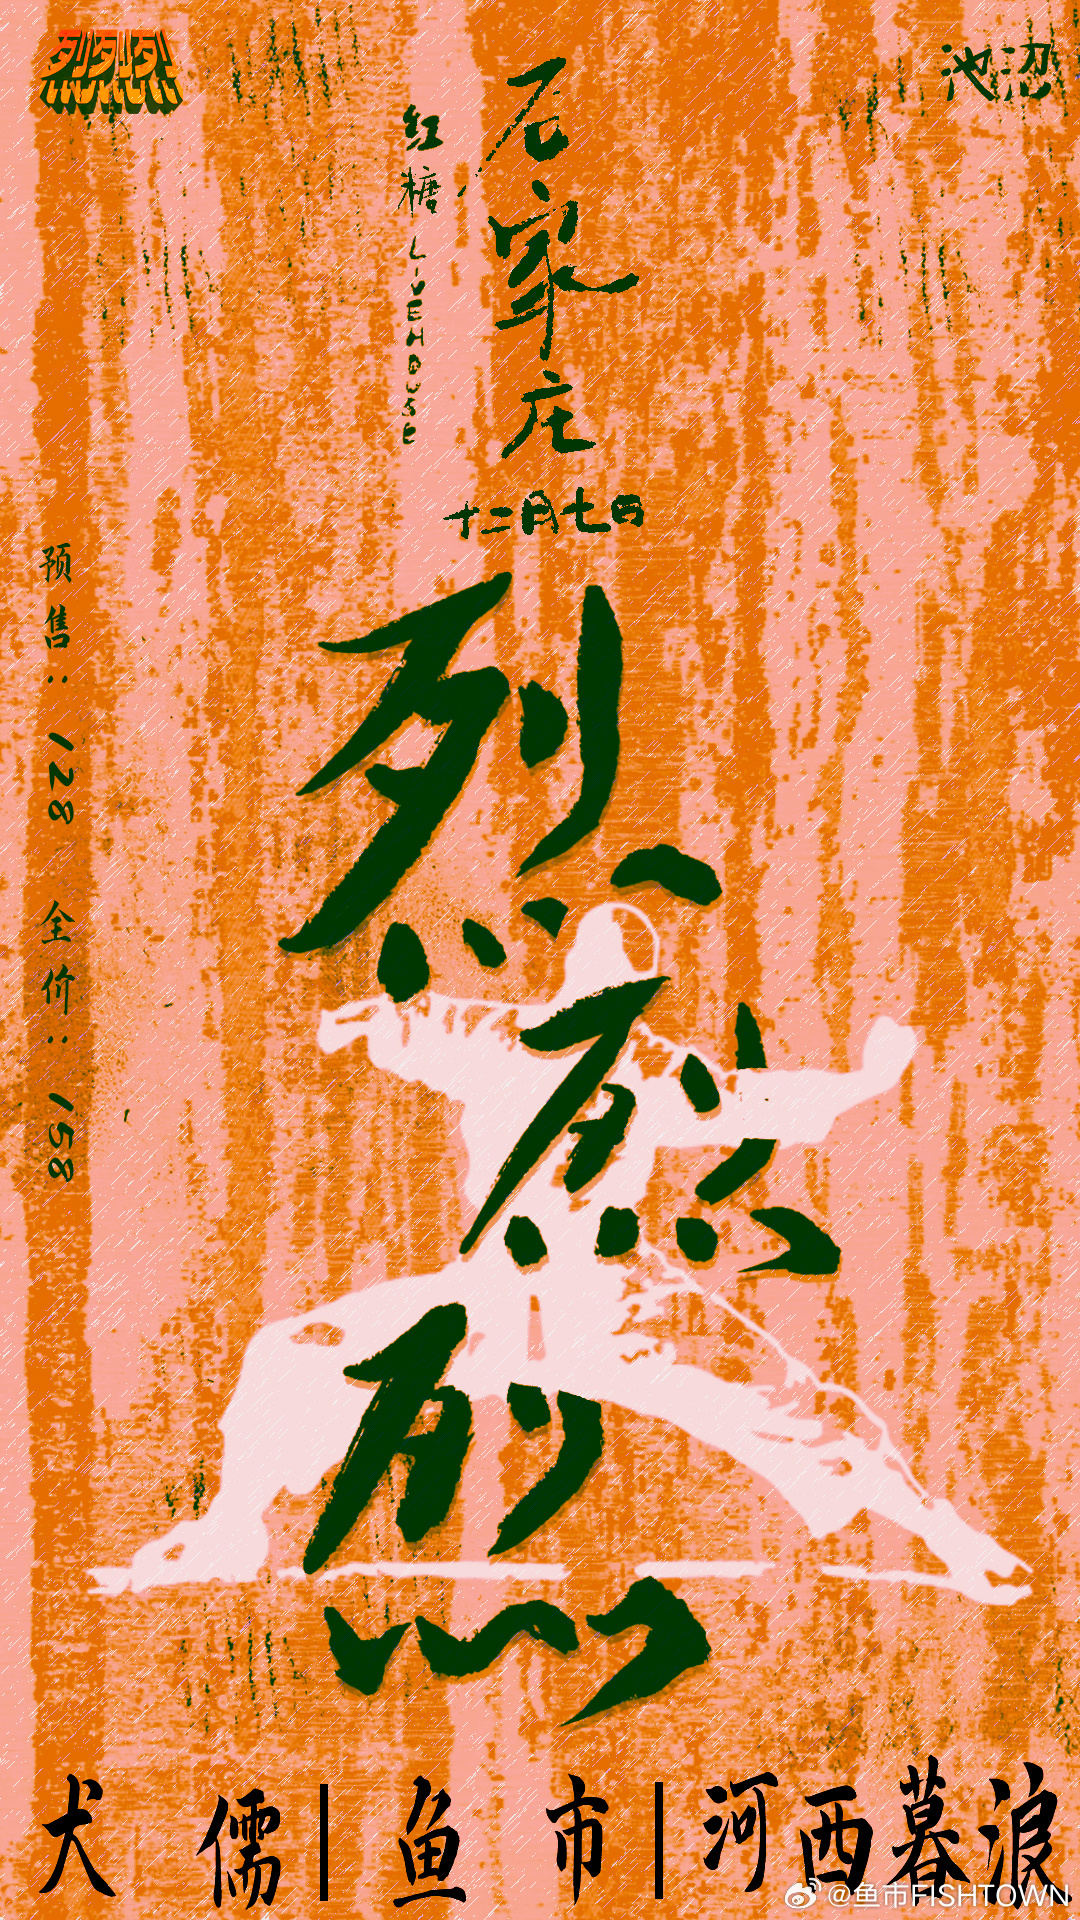 烈烈烈
池沼
石家庄
红糖LIVEHOUSE
十二月七日
预售：128 全价：158
烈
烈
烈
犬儒|鱼市|河西暮浪
@鱼市FISHTOWN